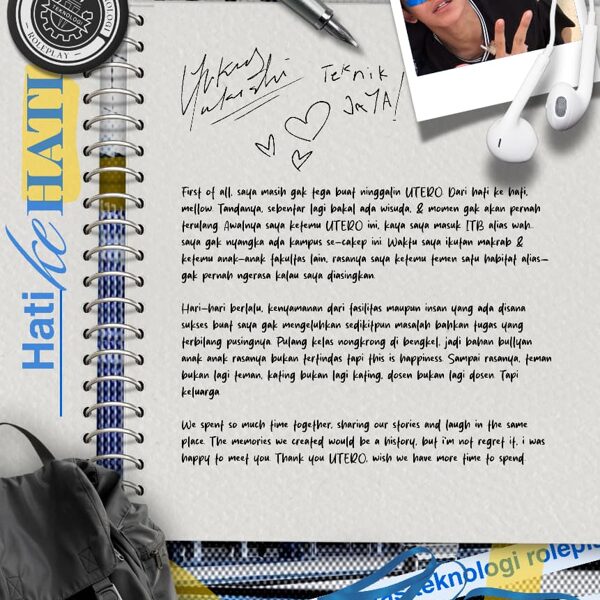 TEKNOLOGI
- ROLLPLAY -
Hati ke HATI
Teknik
JAYA!
First of all, saya masih gak tega buat ninggalin UTERO. Dari hati ke hati,
mellow. Tandanya, sebentar lagi bakal ada wisuda, & momen gak akan pernah
terulang. Awalnya saya ketemu UTERO ini, kaya saya masuk ITB alias wah..
saya gak nyangka ada kampus se-cakep ini. Waktu saya ikutan makrab &
ketemu anak-anak fakultas lain, rasanya saya ketemu temen satu habitat alias-
gak pernah ngerasa kalau saya diasingkan.
Hari-hari berlalu, kenyamanan dari fasilitas maupun insan yang ada disana
sukses buat saya gak mengeluhkan sedikitpun masalah bahkan tugas yang
terbilang pusingnya. Pulang kelas nongkrong di bengkel, jadi bahan bullyan
anak anak rasanya bukan tertindas tapi this is happiness. Sampai rasanya, teman
bukan lagi teman, kating bukan lagi kating, dosen bukan lagi dosen. Tapi
keluarga.
We spent so much time together, sharing our stories and laugh in the same
place. The memories we created would be a history, but i'm not regret it, i was
happy to meet you. Thank you UTERO, wish we have more time to spend.
teknologi rolepl